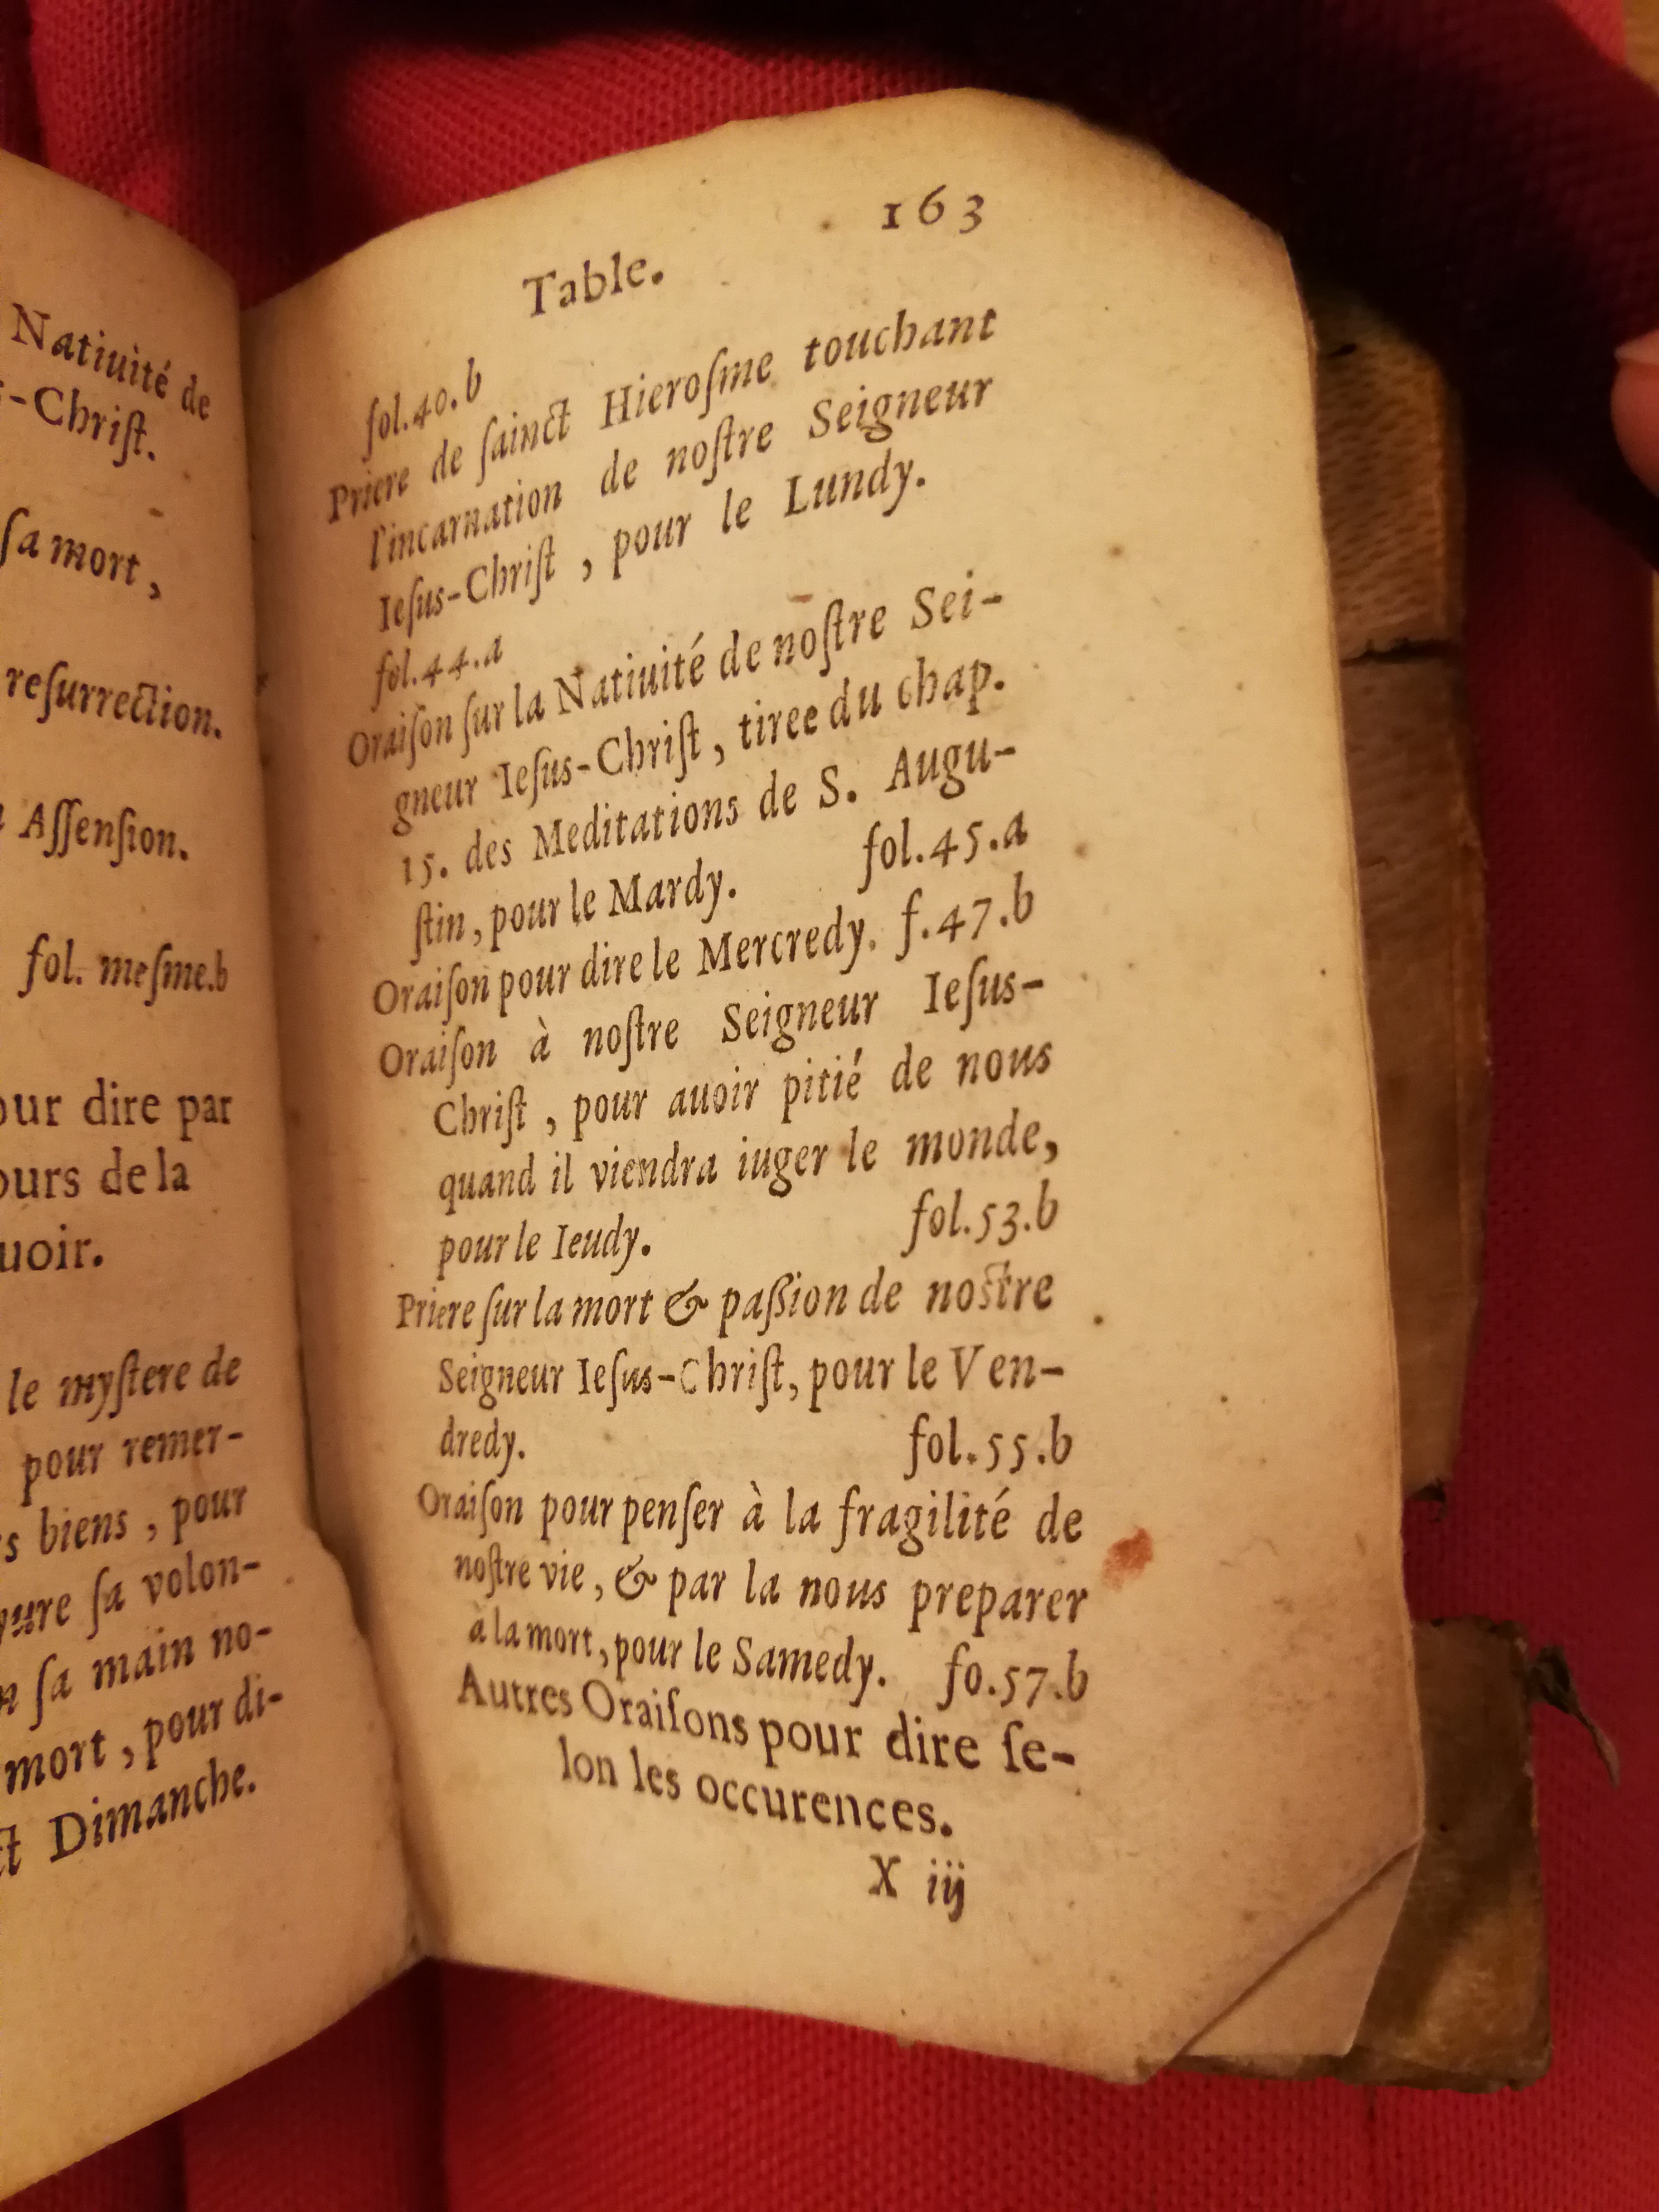 Natiuité de
-Chriſt.
ſa mort,
reſurrection.
Aſſenſion.
fol. meſme.b
our dire par
ours de la
uoir.
le myſtere de
pour remer-
s biens, pour
ſa volon-
ſa main no-
mort, pour di-
Dimanche.
163
Table.
fol.40.b
Priere de ſainct Hieroſme touchant
l'incarnation de noſtre Seigneur
Ieſus-Chriſt, pour le Lundy.
fol.44.a
Oraiſon ſur la Natiuité de noſtre Sei-
gneur Ieſus-Chriſt, tiree du chap.
15. des Meditations de S. Augu-
ſtin, pour le Mardy. fol.45.a
Oraiſon pour dire le Mercredy. f.47.b
Oraiſon à noſtre Seigneur Ieſus-
Chriſt, pour auoir pitié de nous
quand il viendra iuger le monde,
pour le Ieudy. fol.53.b
Priere ſur la mort & paſsion de noſtre
Seigneur Ieſus-Chriſt, pour le Ven-
dredy. fol.55.b
Oraiſon pour penſer à la fragilité de
noſtre vie, & par la nous preparer
à la mort, pour le Samedy. fo.57.b
Autres Oraiſons pour dire ſe-
lon les occurences.
X iij